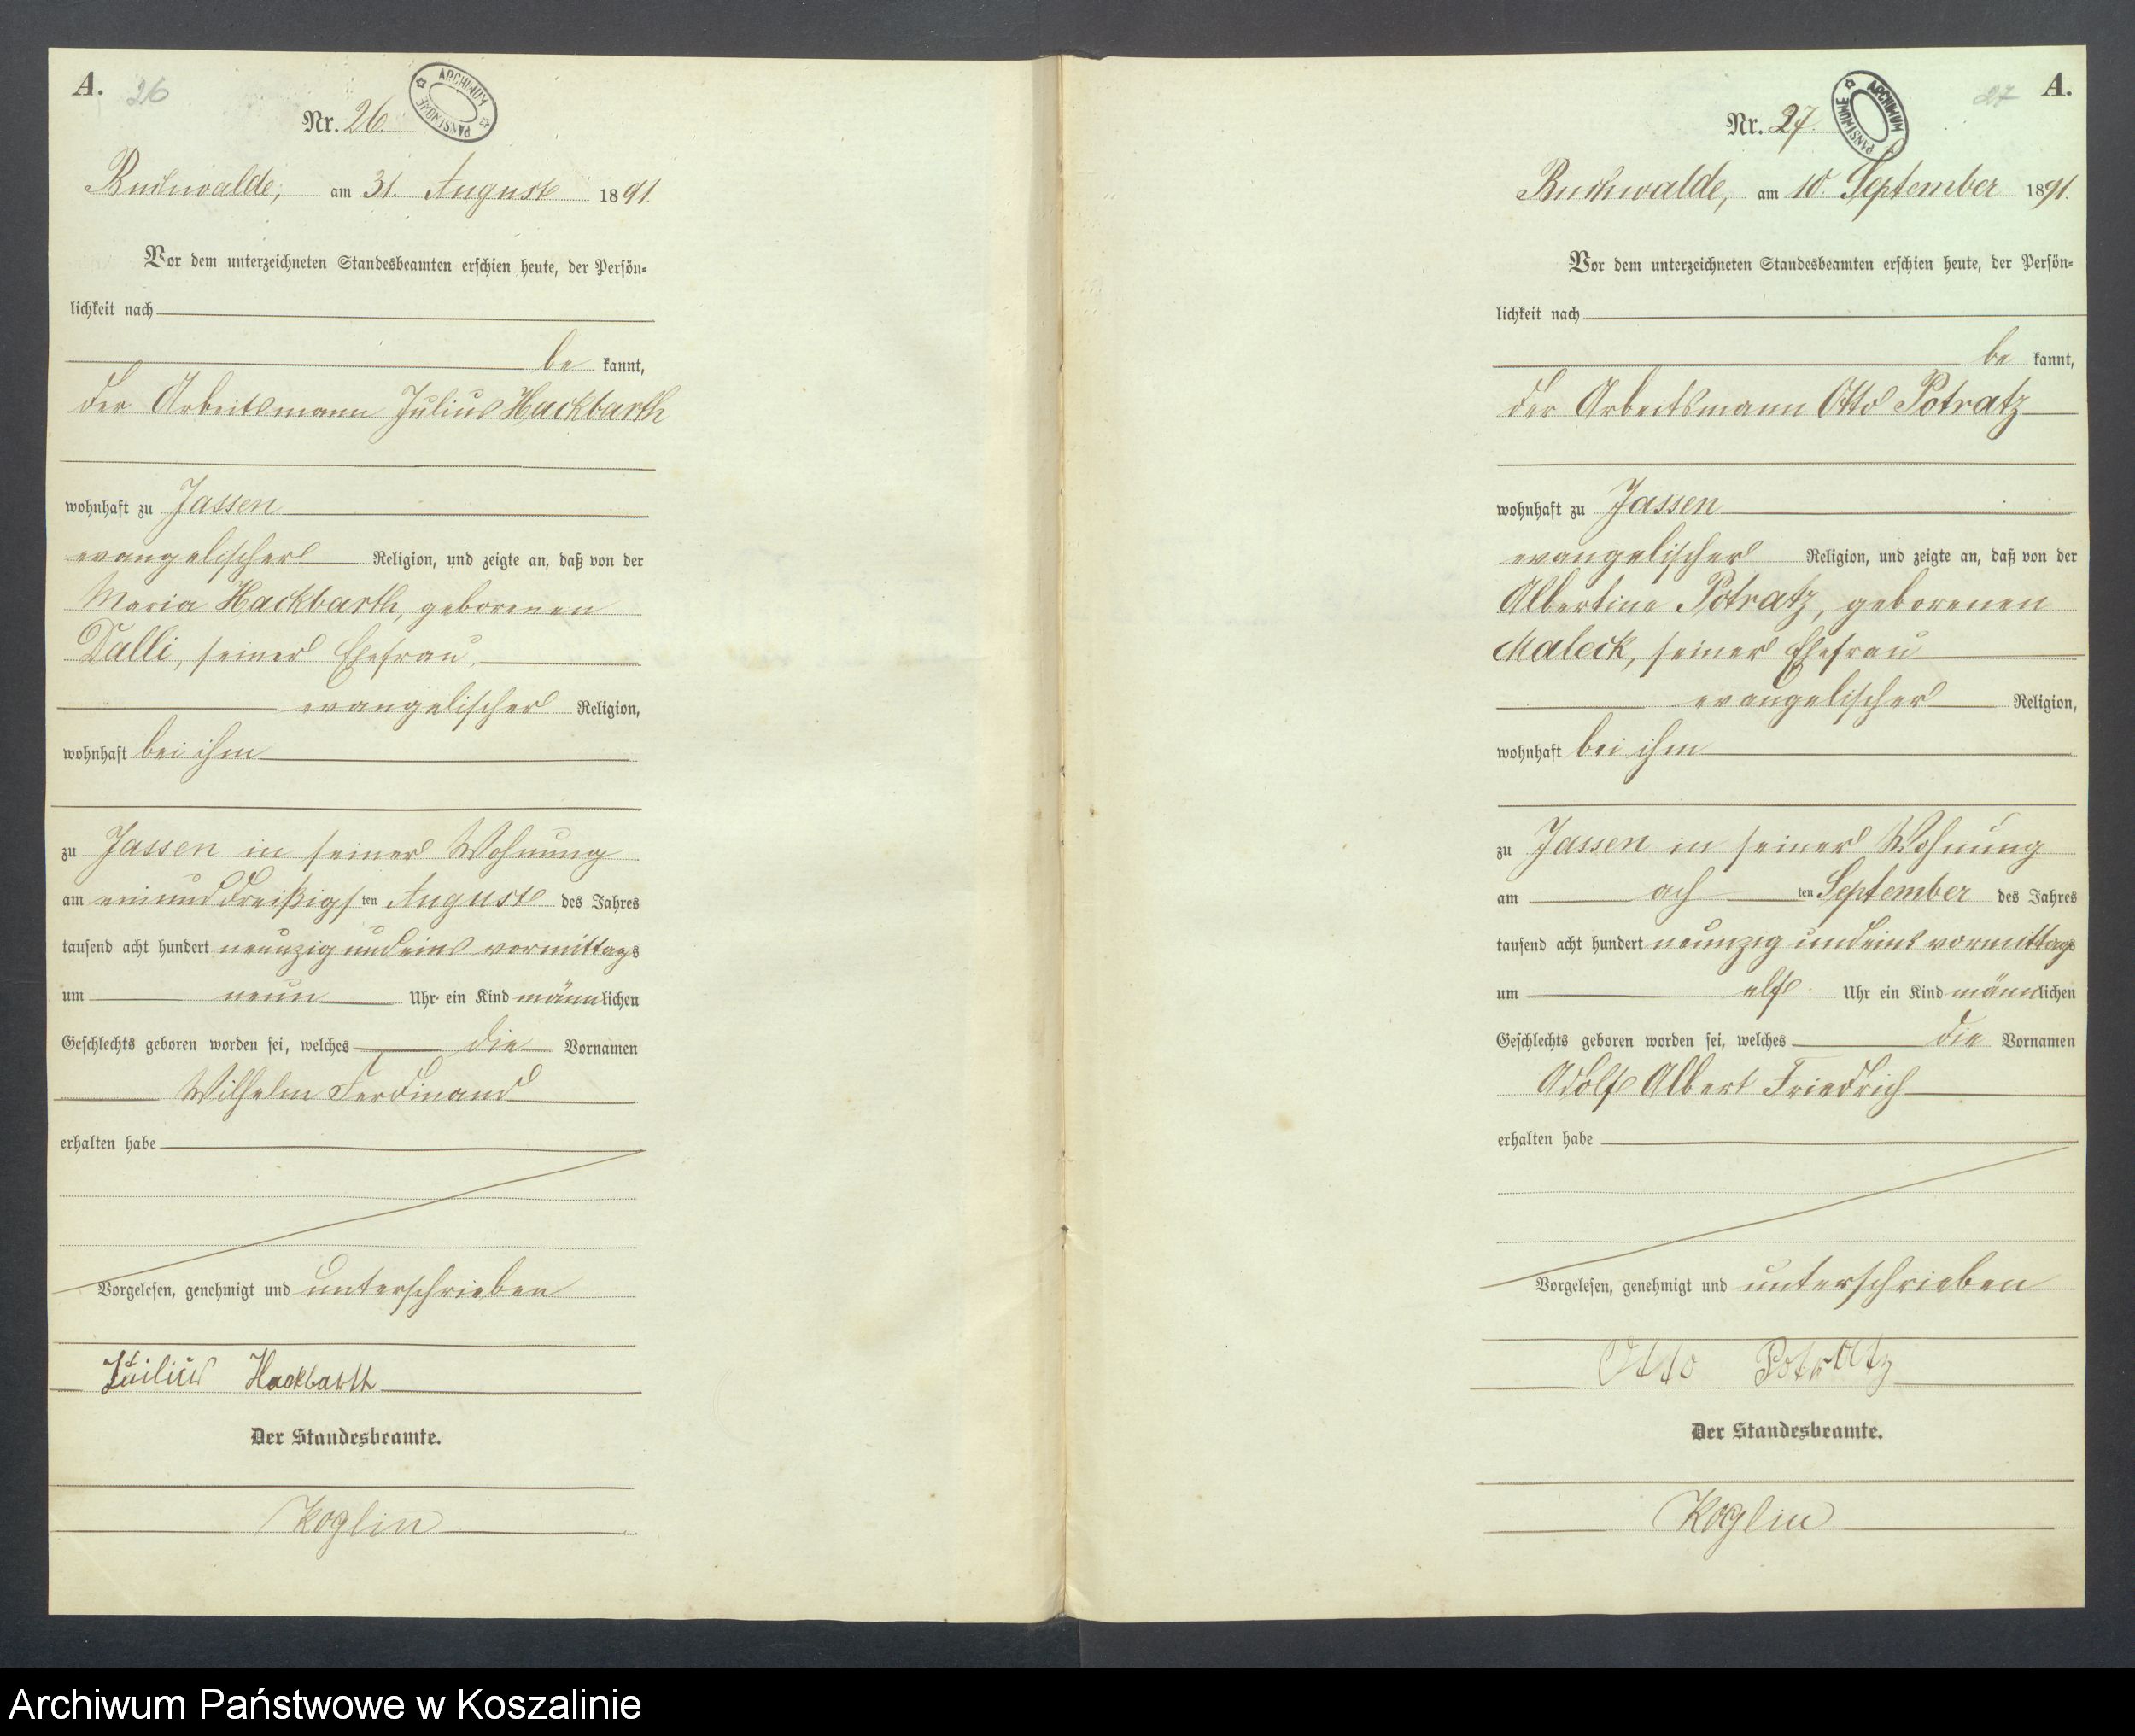 A.
26
Nr. 26.
ARCHIWUM PAŃSTWOWE
Buchwalde, am 31. August 1891.
Vor dem unterzeichneten Standesbeamten erschien heute, der Persön-
lichkeit nach
be kannt,
der Arbeitsmann Julius Hackbarth
wohnhaft zu Jassen
evangelischer Religion, und zeigte an, daß von der
Maria Hackbarth, geborenen
Dalli, seiner Ehefrau,
evangelischer Religion,
wohnhaft bei ihm
zu Jassen in seiner Wohnung
am einunddreißigsten August des Jahres
tausend acht hundert neunzig und eins vormittags
um neun Uhr ein Kind männlichen
Geschlechts geboren worden sei, welches die Vornamen
Wilhelm Ferdinand
erhalten habe
Vorgelesen, genehmigt und unterschrieben
Julius Hackbarth
Der Standesbeamte.
Koglin
A.
27
Nr. 27.
ARCHIWUM PAŃSTWOWE
Buchwalde, am 10. September 1891.
Vor dem unterzeichneten Standesbeamten erschien heute, der Persön-
lichkeit nach
be kannt,
der Arbeitsmann Otto Potratz
wohnhaft zu Jassen
evangelischer Religion, und zeigte an, daß von der
Albertine Potratz, geborenen
Maleck, seiner Ehefrau
evangelischer Religion,
wohnhaft bei ihm
zu Jassen in seiner Wohnung
am ach ten September des Jahres
tausend acht hundert neunzig und eins vormittags
um elf Uhr ein Kind männlichen
Geschlechts geboren worden sei, welches die Vornamen
Adolf Albert Friedrich
erhalten habe
Vorgelesen, genehmigt und unterschrieben
Otto Potratz
Der Standesbeamte.
Koglin
Archiwum Państwowe w Koszalinie